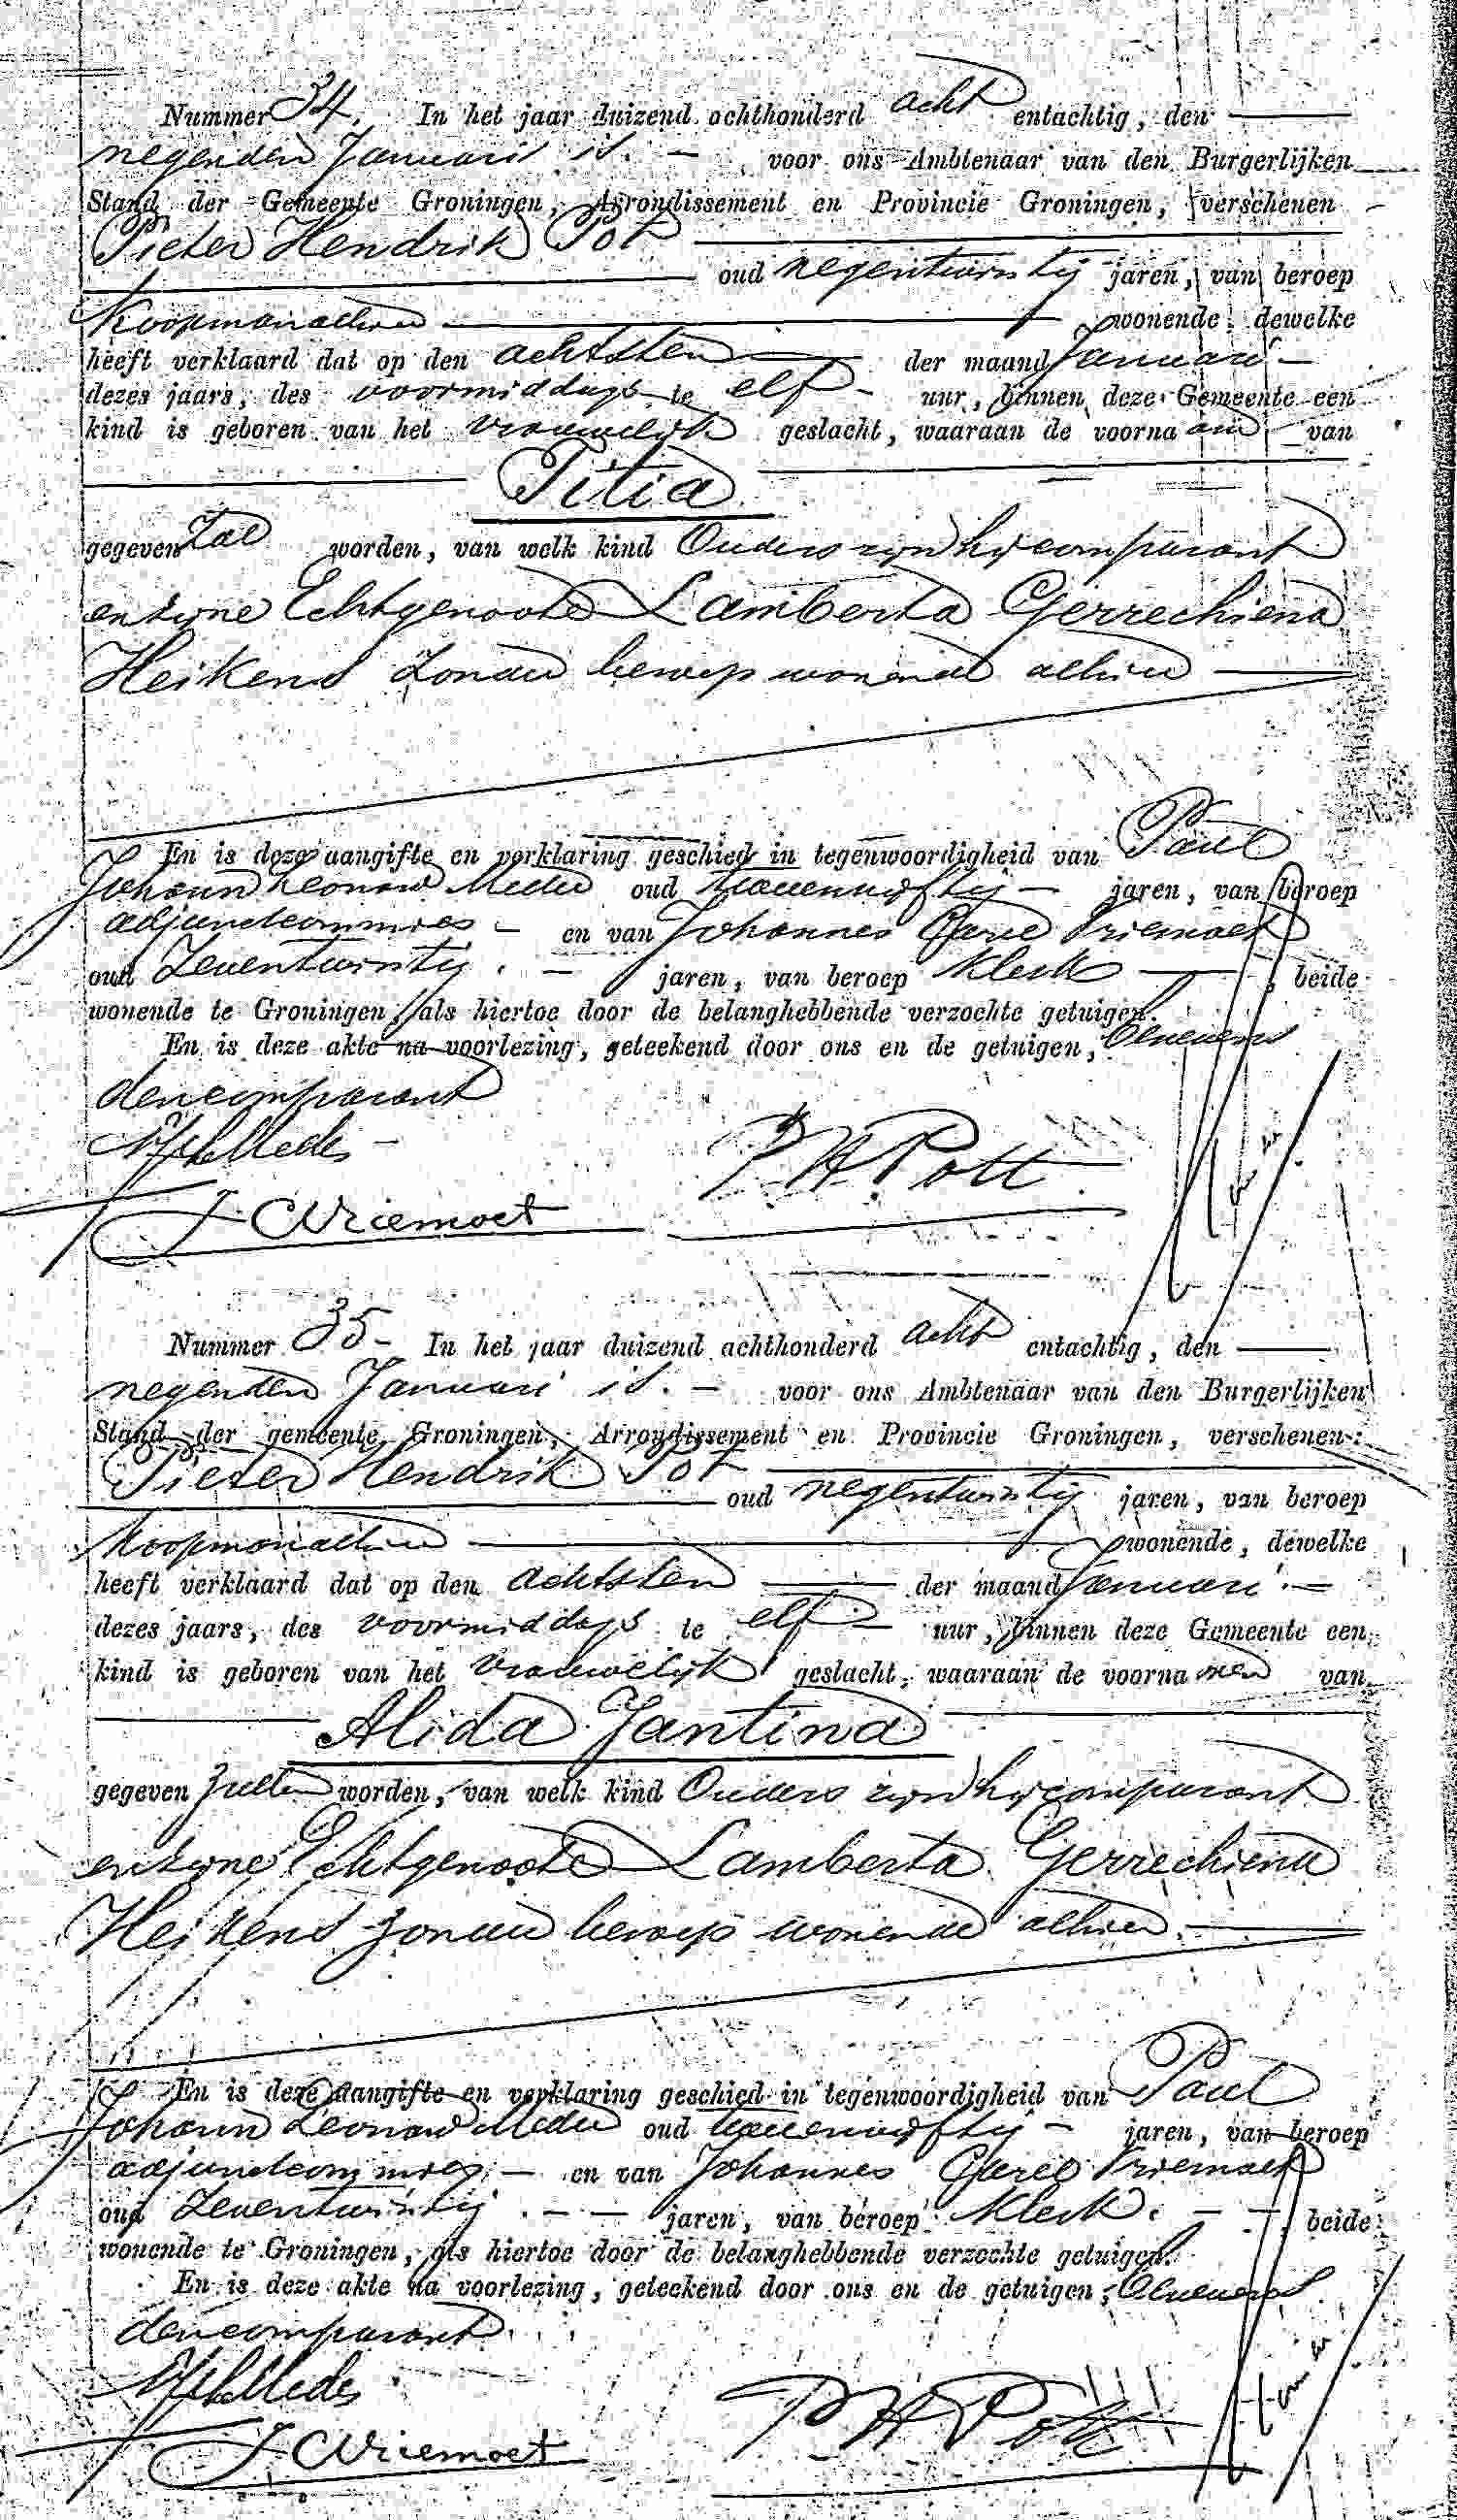 Nummer 34. In het jaar duizend achthonderd acht entachtig, den
negenden Januari is. voor ons Ambtenaar van den Burgerlijken
Stand der Gemeente Groningen, Arrondissement en Provincie Groningen, verschenen
Pieter Hendrik Pot
oud negentwintig jaren, van beroep
Koopman alhier wonende dewelke
heeft verklaard dat op den achtsten der maand Januari
dezes jaars, des voormiddags te elf uur, binnen deze Gemeente een
kind is geboren van het vrouwelijk geslacht, waaraan de voornaam van
Titia
gegeven zal worden, van welk kind Ouders zijn hij comparant
en zijne Echtgenoote Lamberta Gerrechiena
Heikens zonder beroep wonende alhier
En is deze aangifte en verklaring geschied in tegenwoordigheid van Paul
Johann Leonard Meder oud tweeenvijftig jaren, van beroep
adjunctcommies en van Johannes Carel Vriemoet
oud Zeventwintig. jaren, van beroep Klerk, beide
wonende te Groningen, als hiertoe door de belanghebbende verzochte getuigen.
En is deze akte na voorlezing, geteekend door ons en de getuigen, benevens
den comparant
Meder
P. H. Pott
J C Vriemoet
Nummer 35 - In het jaar duizend achthonderd acht entachtig, den
negenden Januari is. voor ons Ambtenaar van den Burgerlijken
Stand der gemeente Groningen, Arrondissement en Provincie Groningen, verschenen:
Pieter Hendrik Pot
oud negentwintig jaren, van beroep
Koopman alhier wonende, dewelke
heeft verklaard dat op den achtsten der maand Januari
dezes jaars, des voormiddags te elf uur, binnen deze Gemeente een
kind is geboren van het vrouwelijk geslacht, waaraan de voornamen van
Alida Jantina
gegeven zullen worden, van welk kind Ouders zijn hij comparant
en zijne Echtgenoote Lamberta Gerrechiena
Heikens zonder beroep wonende alhier.
En is deze aangifte en verklaring geschied in tegenwoordigheid van Paul
Johann Leonard Meder oud tweeenvijftig jaren, van beroep
adjunctcommies en van Johannes Carel Vriemoet
oud Zeventwintig. jaren, van beroep Klerk. beide
wonende te Groningen, als hiertoe door de belanghebbende verzochte getuigen.
En is deze akte na voorlezing, geteekend door ons en de getuigen, benevens
den comparant.
Meder
P H Pott
J C Vriemoet